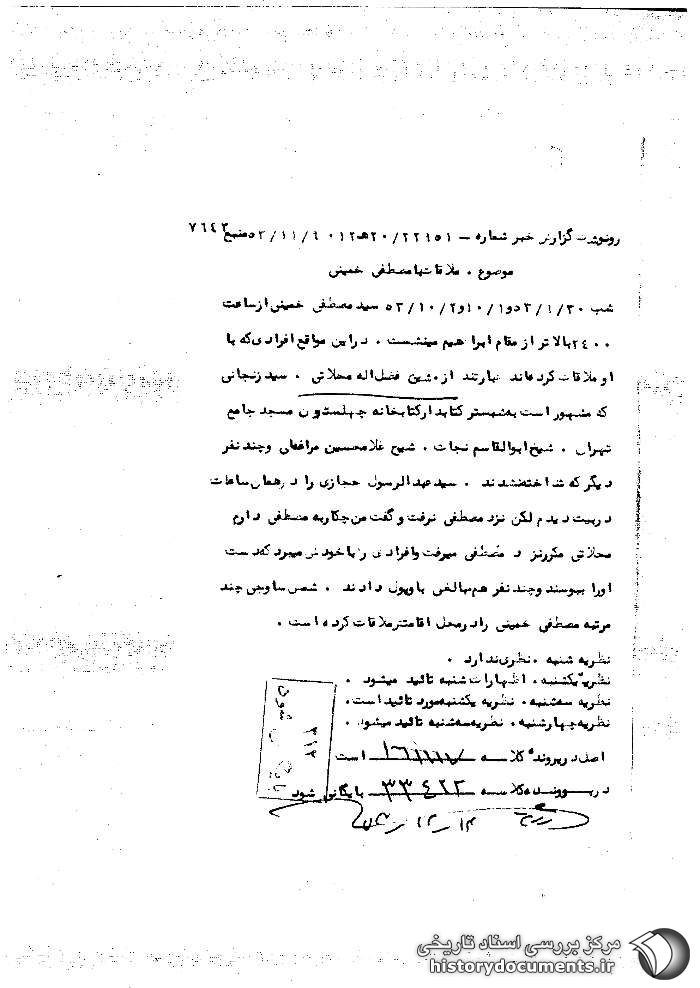 رونوشت گزارش خبر شماره – ۲۰/۲۲۹۵۱هـ۱۲ ۵۳/۱۱/۶ منبع ۷۶۴۲
موضوع . ملاقات با مصطفی خمینی
شب ۳۰/ ۵۳/۹ و ۱/۱۰ و ۵۳/۱۰/۲ سید مصطفی خمینی از ساعت
۲۴۰۰ بالاتر از مقام ابراهیم مینشست . در این مواقع افرادی که با
او ملاقات کرده‌اند عبارتند از . شیخ فضل اله محلاتی . سید زنجانی
که مشهور است به شبستر کتابدار کتابخانه چهلستون مسجد جامع
تهران . شیخ ابوالقاسم نجات . شیخ غلامحسین مراغه‌ای و چند نفر
دیگر که شناخته نشدند . سید عبدالرسول حجازی را در همان ساعات
در بیت دیدم لکن نزد مصطفی نرفت و گفت من چکار به مصطفی دارم
محلاتی مکرر نزد مصطفی میرفت و افرادی را با خودش میبرد که دست
او را ببوسند و چند نفر هم مبالغی باو پول دادند . شمس ساوجی چند
مرتبه مصطفی خمینی را در محل اقامتش ملاقات کرده است .
نظریه شنبه . نظری ندارد .
نظریه یکشنبه . اظهارات شنبه تائید میشود .
نظریه سه‌شنبه . نظریه یکشنبه مورد تائید است .
نظریه چهارشنبه . نظریه سه‌شنبه تائید میشود .
اصل در پرونده کلاسه است
در پرونده کلاسه ۳۳۴۲۲ بایگانی شود
۳۱۲
مرکز بررسی اسناد تاریخی
historydocuments.ir